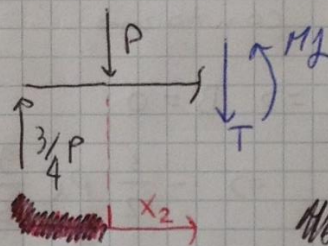 P
Mf
T
3/4 P
x₂